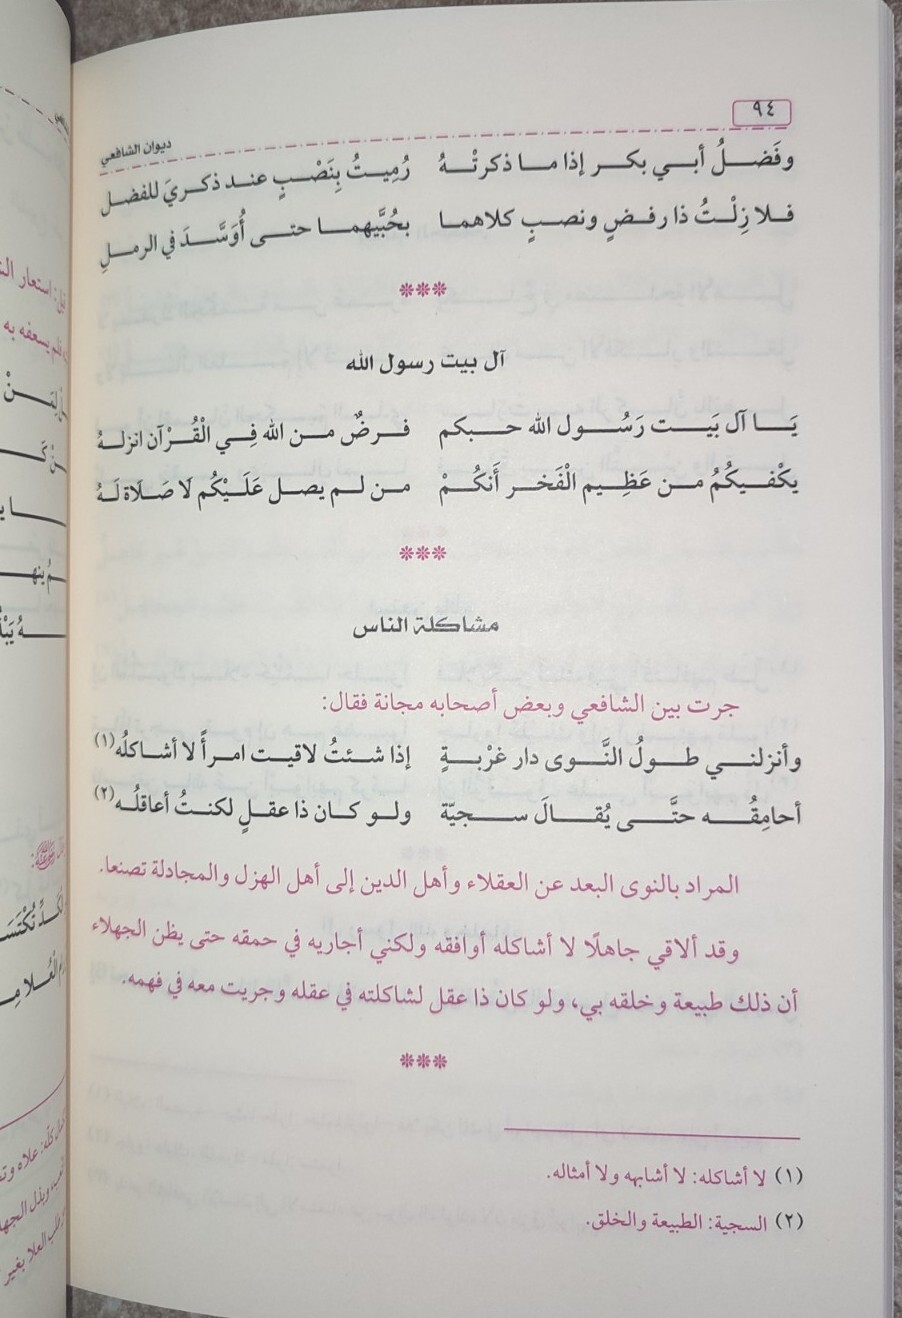 ٩٤
ديوان الشافعي
وفَضلُ أبي بكر إذا ما ذكرتْهُ رُميتُ بِنَصْبٍ عند ذكريَ للفضل
فلا زِلْتُ ذا رفضٍ ونصبٍ كلاهما بحُبَّيهما حتى أُوَسَّدَ في الرملِ
***
آل بيت رسول الله
يَا آل بَيت رَسُول الله حبكم فرضٌ من الله فِي الْقُرْآن انزلهُ
يكْفيكُمُ من عَظِيم الْفَخر أَنكُمْ من لم يصل عَلَيْكُم لَا صَلَاة لَهُ
***
مشاكلة الناس
جرت بين الشافعي وبعض أصحابه مجانة فقال:
وأنزلني طولُ النَّوى دار غرْبةٍ إذا شئتُ لاقيت امرأً لا أشاكلُه(١)
أحامِقُه حتَّى يُقالَ سجيّة ولو كان ذا عقلٍ لكنتُ أعاقلُه(٢)
المراد بالنوى البعد عن العقلاء وأهل الدين إلى أهل الهزل والمجادلة تصنعا.
وقد ألاقي جاهلًا لا أشاكله أوافقه ولكني أجاريه في حمقه حتى يظن الجهلاء
أن ذلك طبيعة وخلقه بي، ولو كان ذا عقل لشاكلته في عقله وجريت معه في فهمه.
***
(١) لا أشاكله: لا أشابهه ولا أمثاله.
(٢) السجية: الطبيعة والخلق.